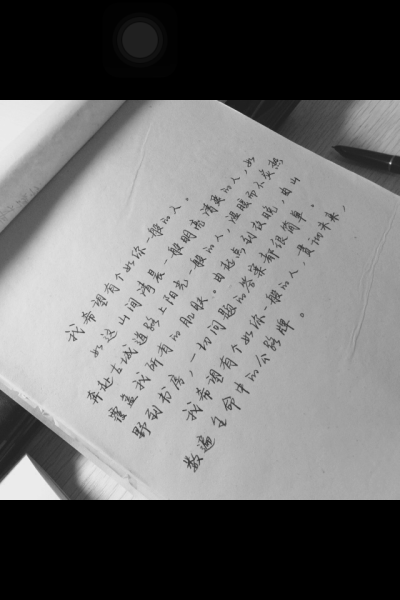 我希望有个如你一般的人。
如这山间清晨一般明亮清爽的人,如
奔赴古城道路上阳光一般的人,温暖而不炙热
覆盖我所有的肌肤。由起点到夜晚,由山
野到书房,一切问题的答案都很简单。
我希望有个如你一般的人,贯彻未来,
数遍生命中的公路牌。